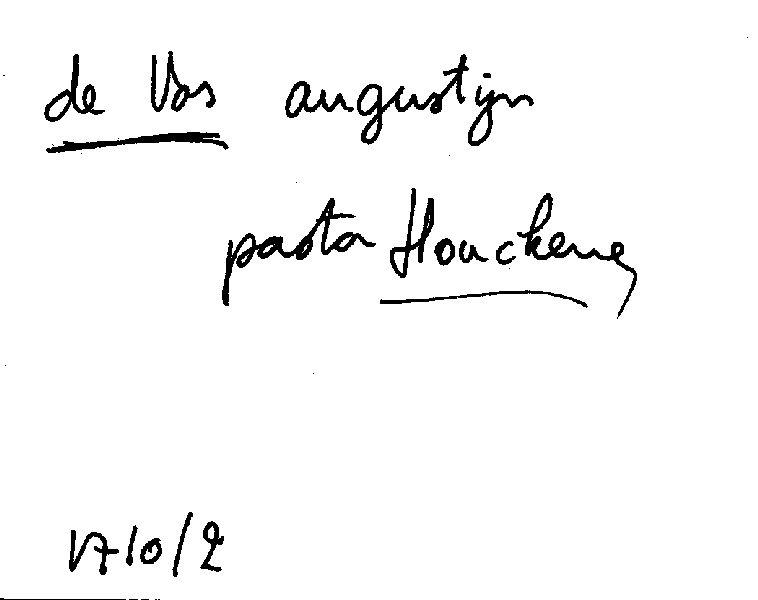 de Vos augustijn
pastor Houckene,
1710/2